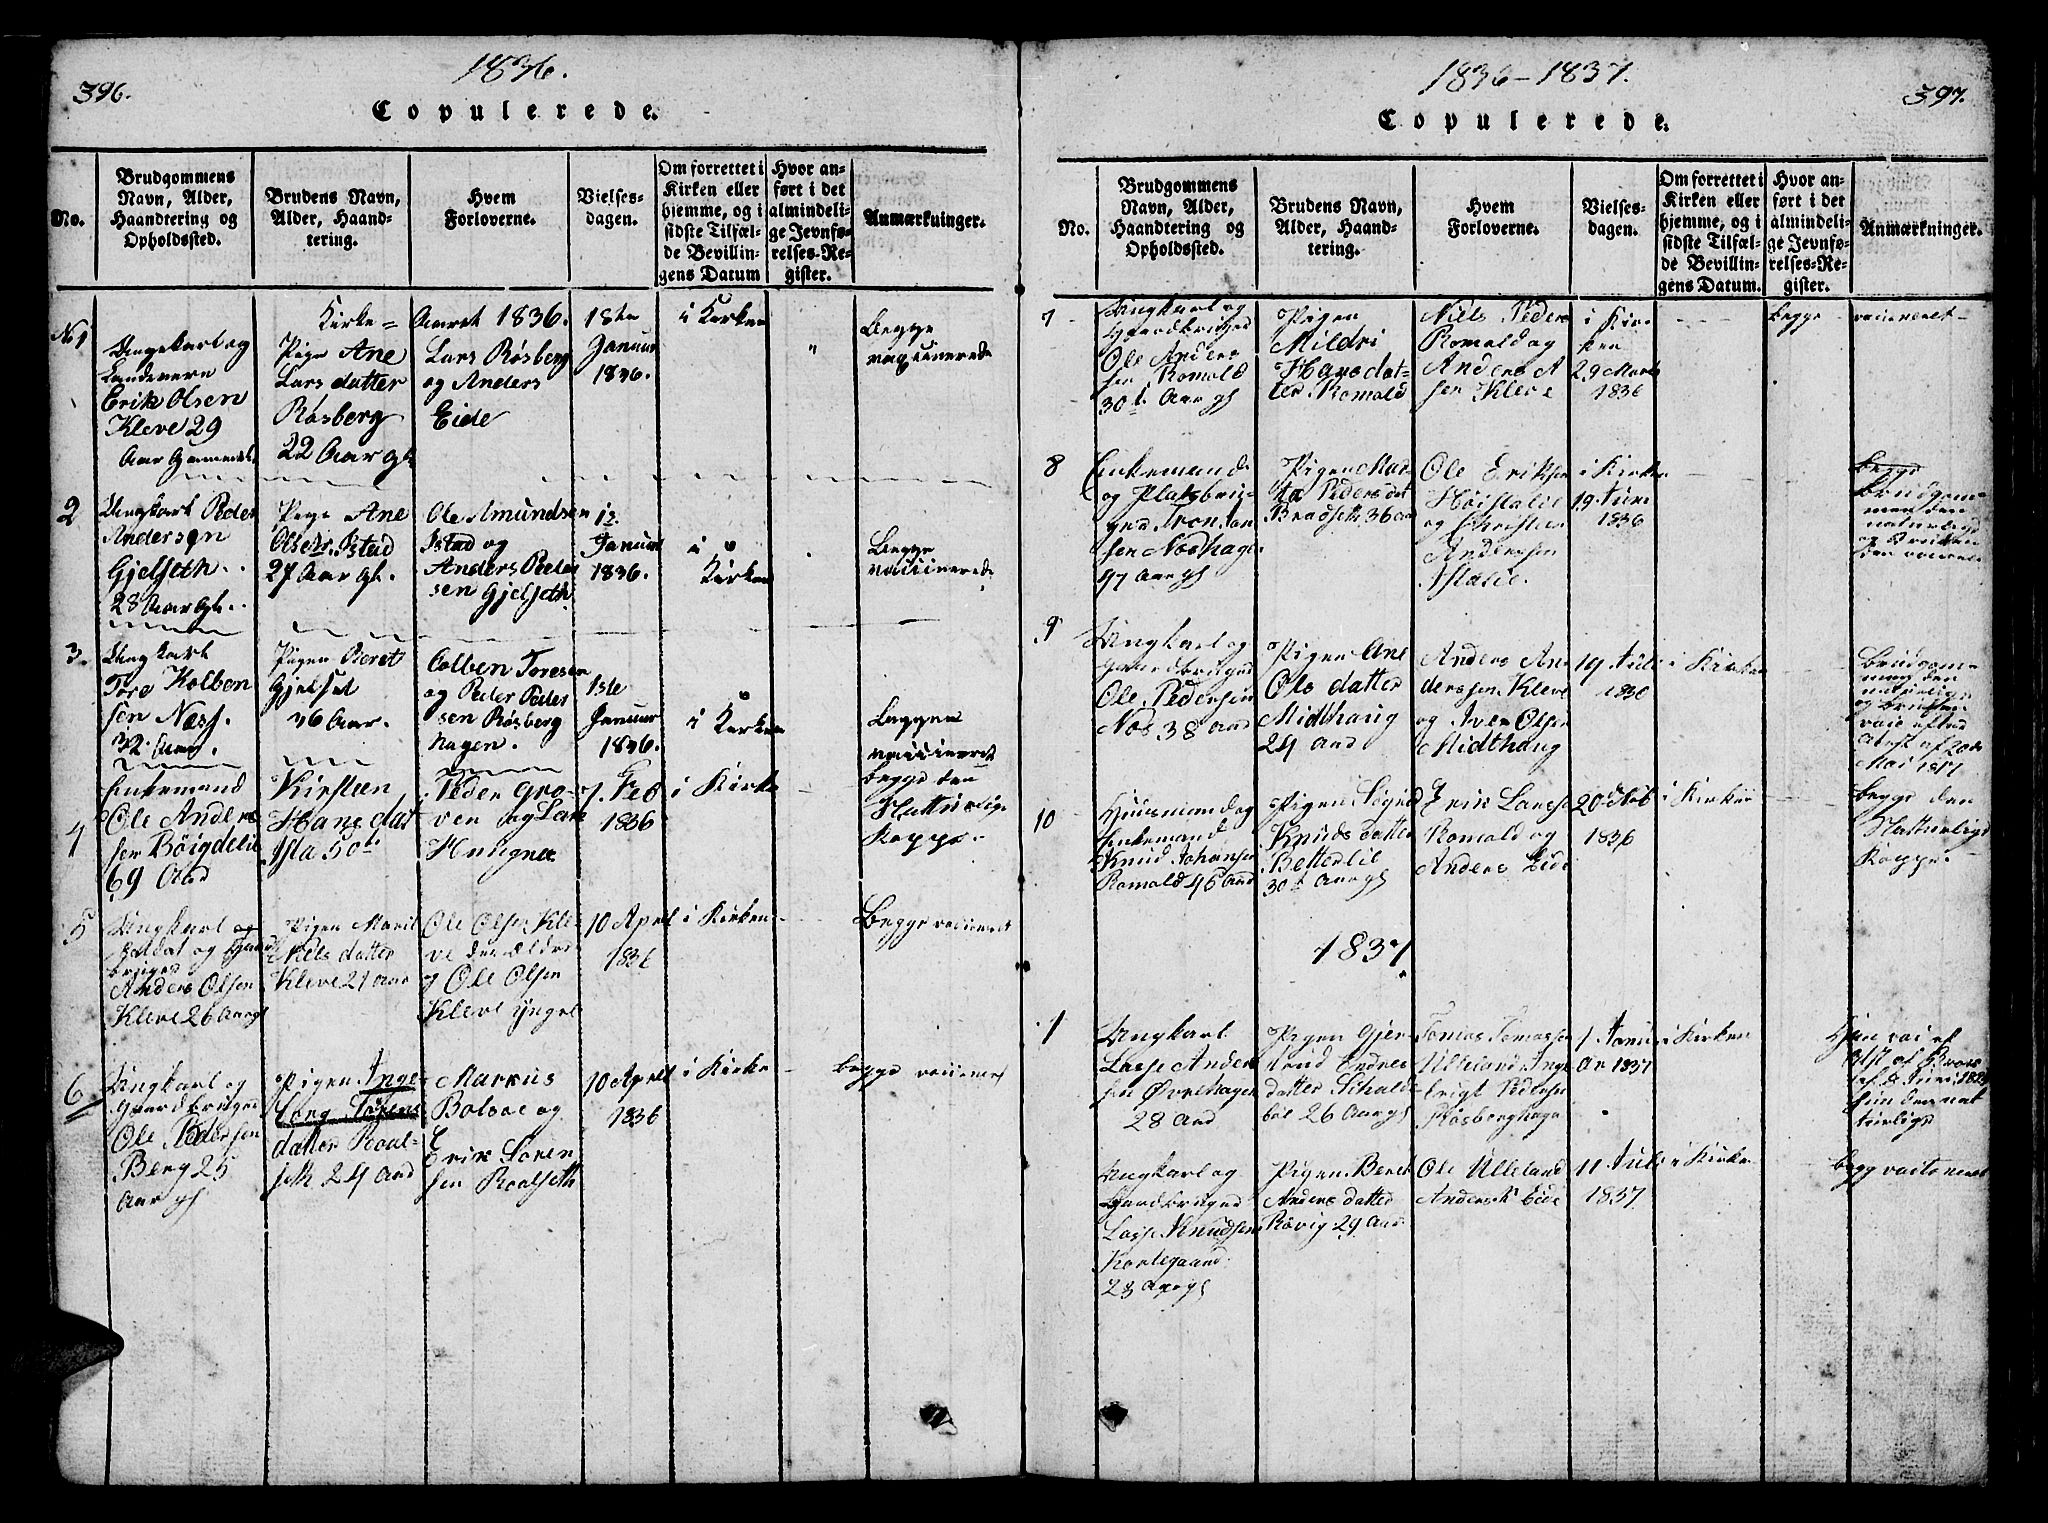 396.
1836.
Copulerede.
No.
Brudgommens
Navn, Alder,
Haandtering og
Opholdssted.
Brudens Navn,
Alder, Haand-
tering.
Hvem
Forloverne.
Vielses-
dagen.
Om forrettet i
Kirken eller
hjemme, og i
sidste Tilfæl-
de Bevillin-
gens Datum
Hvor an-
ført i det
almindeli-
ge Jevnfø-
relses-Re-
gister.
Anmærkninger.
Kirke = Aaret 1836.
No 1
Ungekarl og
Landevern
Erik Olsen
Kleve 29
Aar Gammel
Pige Ane
Lars datter
Røsberg
22 Aar gl.
Lars Røsberg
og Anders
Eide
18te
Januar
1836.
i Kirken
"
Begge
vaccinerede
2
Ungkarl Peder
Andersen
Gjelseth.
28 Aar gl.
Pige Ane
Olsdr. Istad
27 Aar gl.
Ole Amundsen
Istad og
Anders Peder
sen Gjelseth
Januar
1836.
i
Kirken
Begge
vaccinerede
3.
Ungkarl
Tore Kolben
sen Næss.
32 Aar.
Pigen Beret
Gjelset
46 Aar.
Colben Toresen
og Peder Peder
sen Røsberg
hagen.
1ste
Januar
1836.
i Kirken
Begge
vaccineret
4
Enkemand
Ole Anders
sen Böigdelie
69 Aar
Kirsteen
Hans dat
Ista 50
Peder Gro-
ven og Lars
7. Feb
1836
i Kirke
begge den
Natturlige
Kopper.
5
Ungkarl og
Soldat og Gaard
bruger
Anders Olsen
Kleve 26 Aar gl
Pigen Marit
Niels datter
Kleve 21 Aar
Ole Olsen Kle
ve den ældre
og Ole Olsen
Kleve yngel
10 April
1836
i Kirken
Begge vacineret
6
Ungkarl og
Gaardbruger
Ole Pedersen
Berg 25
Aar gl
Pigen Inge
borg Sørens
datter Roal-
seth 24 Aar
Markus
Bolsøe og
Erik Soren
sen Roalseth
10 April
1836
i Kirke
begge vacineret
1836-1837.
397.
Copulerede.
No.
Brudgommens
Navn, Alder,
Haandtering og
Opholdssted.
Brudens Navn,
Alder, Haand-
tering.
Hvem
Forloverne.
Vielses-
dagen.
Om forrettet i
Kirken eller
hjemme, og i
sidste Tilfæl-
de Bevillin-
gens Datum.
Hvor an-
ført i det
almindeli-
ge Jevnfø-
relses-Re-
gister.
Anmærkninger.
7
Ungkarl og
Gaardbruger
Ole Anders
sen Romald
30 Aar gl
Pigen
Mildri
Hans dat-
ter Romald
Niels Peders
Romald og
Anders A
sen Kleve
i Kir
ken
29 Marts
1836
begge vacineret
8
Enkemand
og Pladsbru-
ger Tron Jon
sen Nodhagen
47 Aar gl
Pigen Mar-
ta Peders dat
Bradseth 36 aar
Ole Eriksen
Høistalie
og Christen
Anderssen
Istalie.
i Kirken
19 Juni
1836
begge
brudgom-
men den
naturlige
og Bruden
den vacine
9
Ungkarl og
Gaardbruger
Ole Pedersen
Nos 38 aar
Pigen Ane
Ols datter
Midthaug
24 aar
Anders An
derssen Kleve
og Iver Olsen
Midthaug
19 Juli
1836
i Kirken
Brudgom-
men den
naturlige
og bruden
vaci efter
Atest af 20de
Mai 1817
10
Huusmand og
Enkemand
Knud Johansen
Romald 46 aar
Pigen Sigrid
Knuds datter
Betterlie
30 Aar gl
Erik Larsse
Romald og
Anders Eide
20 Feb
1836
i Kirken
begge den
Natturlige
Koppe.
1837
1
Ungkarl
Lasse Anders
sen Øvrehagen
28 Aar
Pigen Gjer
trud Endres
datter Sihals
bøl 26 Aar gl
Tomas Tomassen
Ulleland Inge
brigt Pedersen
Røsberghage
1 Janu
ar 1837
i Kirken
Hun vaci ef
af
1829
hun den nat
turlige
Ungkarl og
Gaardbruger
Lasse Knudsen
Kortegaard
28 Aar gl
Pigen Beret
Anders datter
Røvig 29 Aar
Ole Ulleland
Anders Eide
11 Juli
1837
i Kirke
begg vacioneret